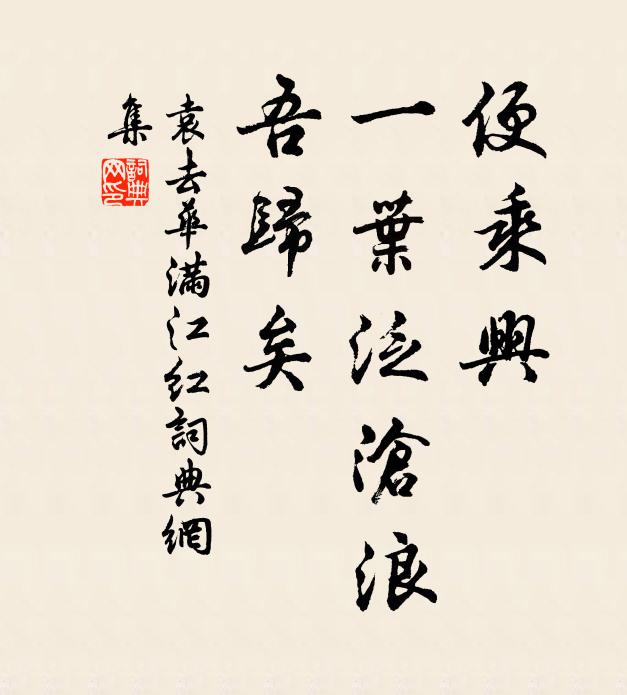 便乘興
一葉泛滄浪
吾歸矣
袁去華滿江紅詞典網
集
詞典網印